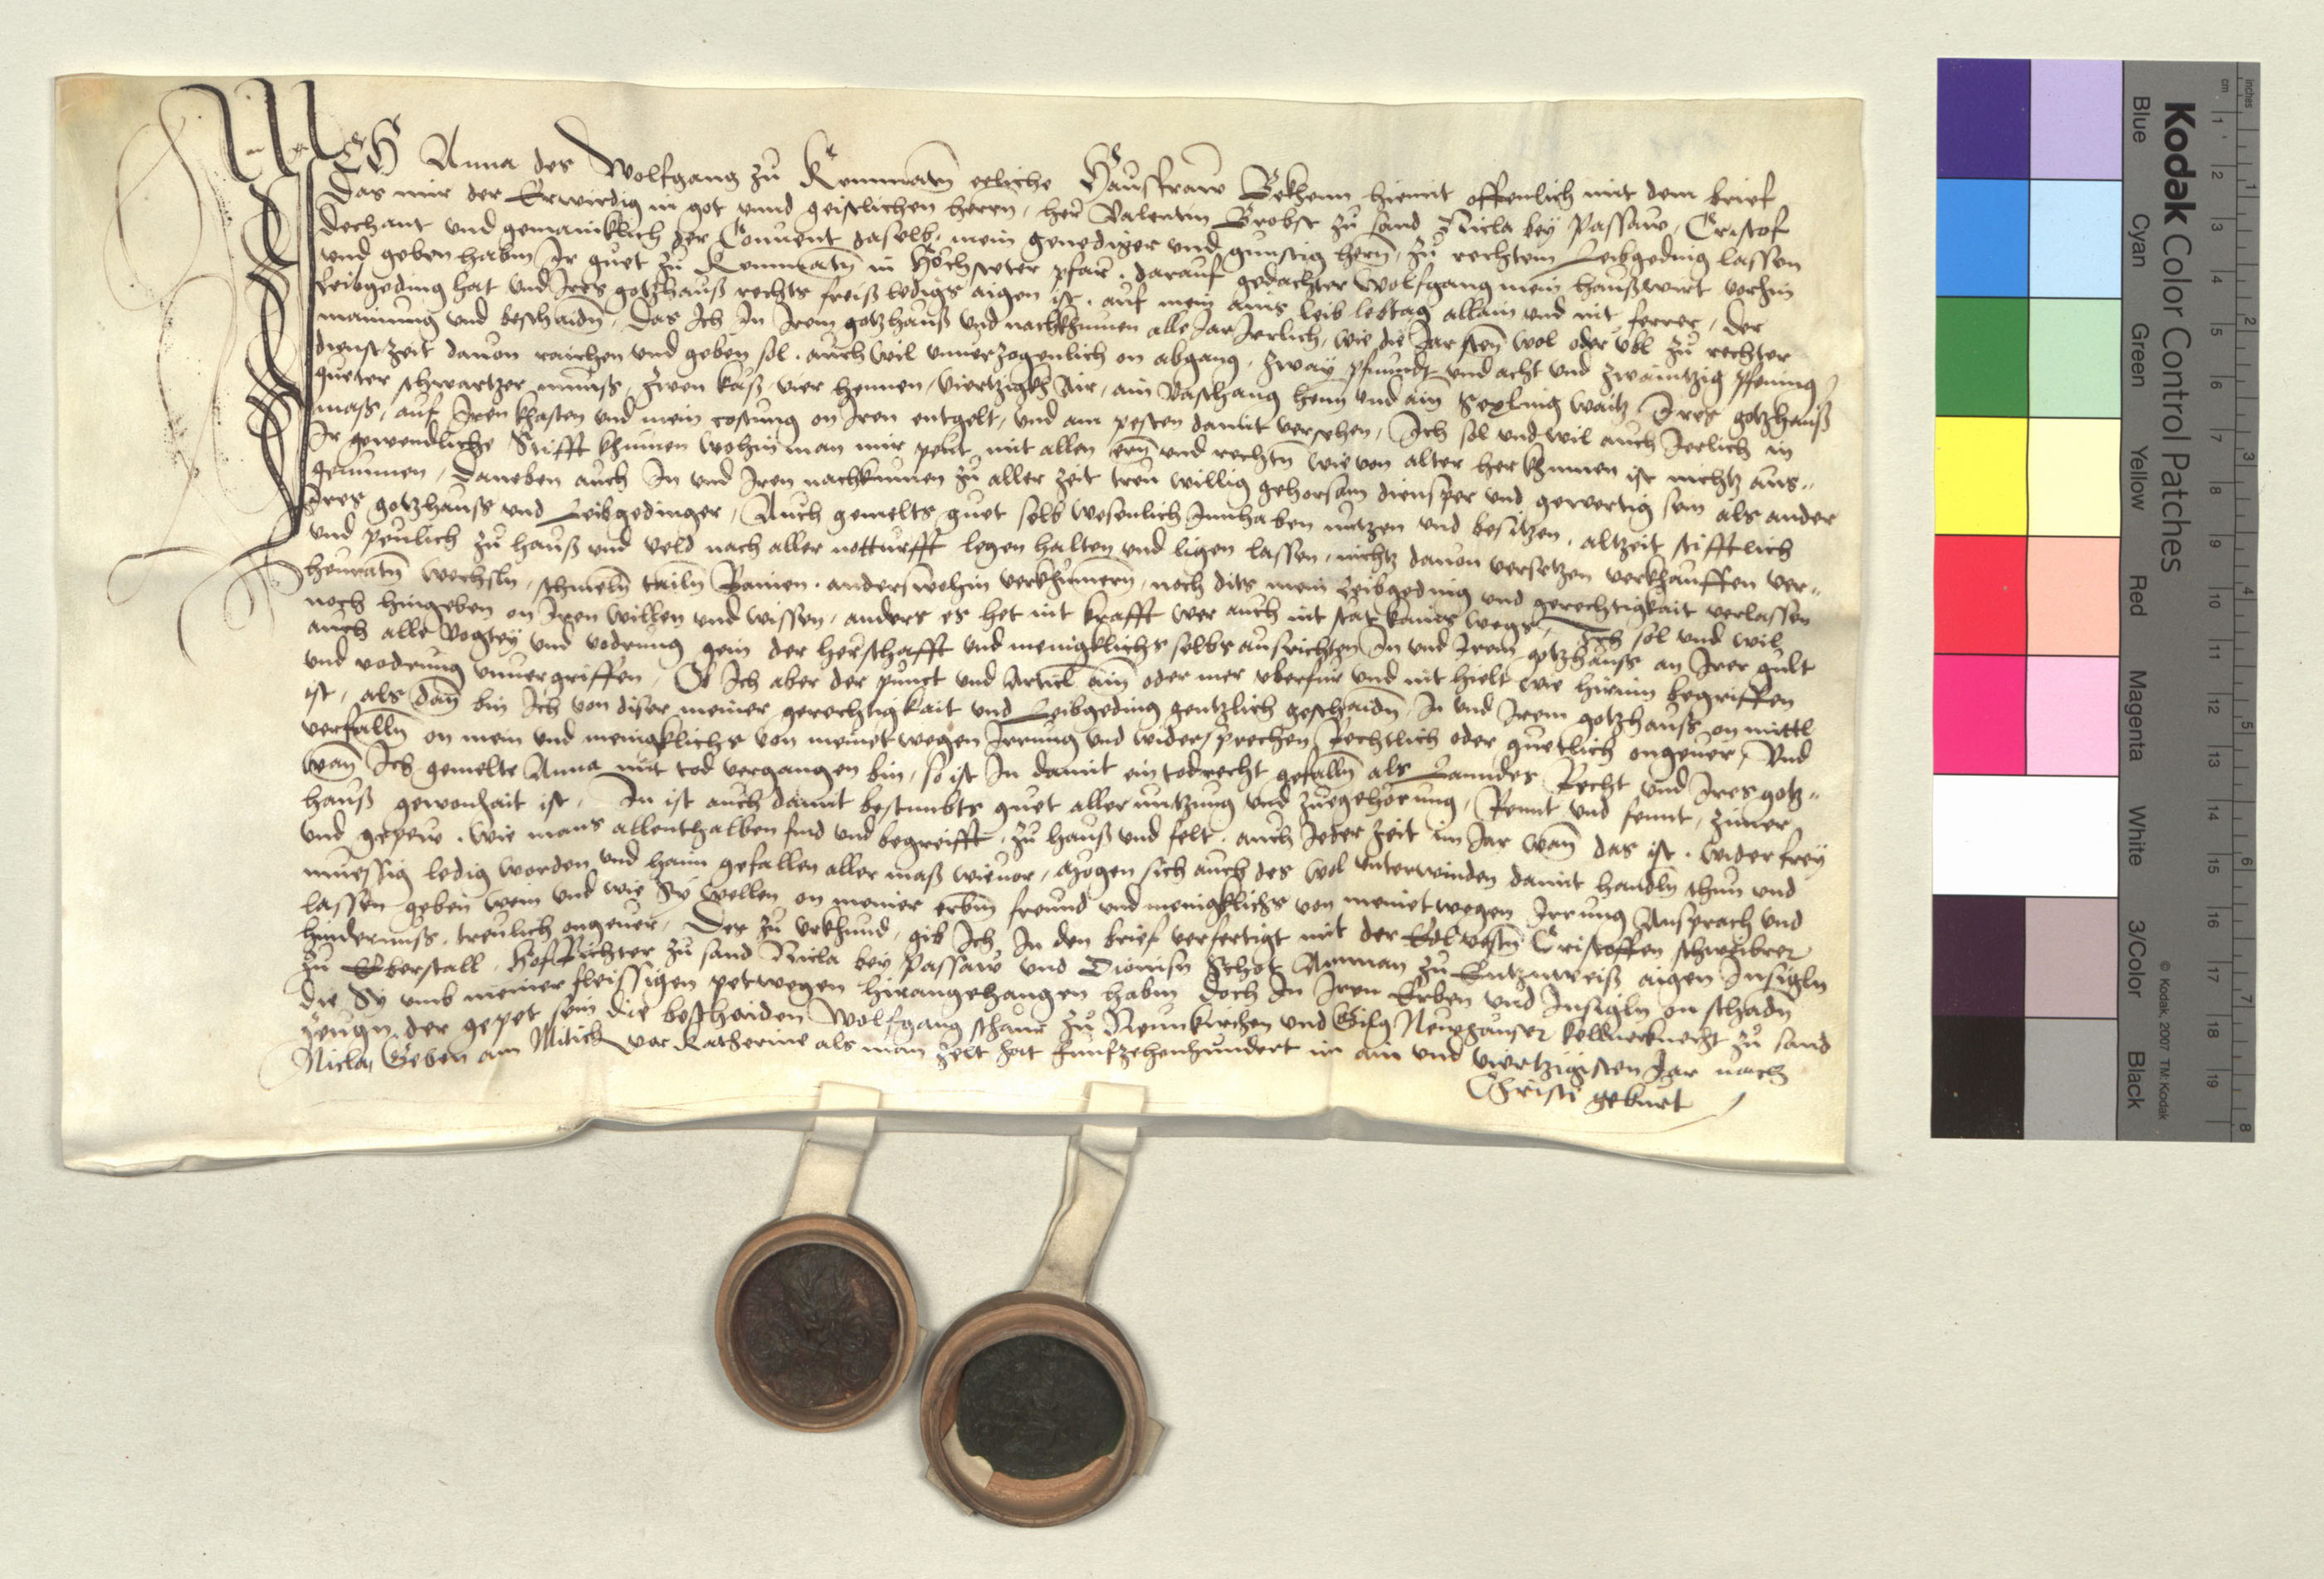 Ich Anna des Wolfgang zu Kemnatn eeliche Hausfraw Bekhenn hiemit offenlich mit dem brief
Das mir der Erwirdig in got vnnd geistlichen herrn, her Valentin Brobst zu sand Nicla bey Passaw, Cristof
dechant vnd gemainklich der Conuent daselb, mein genediger vnd gunstig hern, zu rechtem Leibgeding lassen
vnd geben habm Ir guet zu Kemnatn in Höchsteter pfar, darauf gedachter Wolfgang mein haußwirt vorhin
Leibgeding hat vnd Ires gotzhauß rechts freiß ledigs aigen ist, auf mein ains leib lebtag allain vnd nit ferrer, Der
mainung vnd beschaidn, Das Ich In Irem gotzhauß vnd nachkhumen alle Jar Jerlich, wie die Jar sten wol oder vbl zu rechter
dienstzeit dauon raichen vnd geben sol, auch wil vnuerzogenlich on abgang, zway pfundt vnd acht vnd zwaintzig pfening
gueter schwartzer munss, zwen käß, vier hennen, viertzigkh Air, ain Vaschang henn vnd ain Sexling waitz Ires gotzhauß
maß, auf Iren khasten vnd mein costung on Iren entgelt, vnd am pesten damit versehen, Ich sol vnd wil auch Jerlich in
Ir gewendliche Stifft khumen wohin man mir peut mit allen ern vnd rechtn wie von alter her khumen ist nichtz aus=
genummen, Daneben auch In vnd Iren nachkumen zu aller zeit treu willig gehorsam diensper vnd gewertig sein als ander
Ires gotzhauss vnd Leibgedinger, Auch gemelts guet selb wesenlich Innhaben nutzen vnd besitzen, altzeit stifftlich
vnd peulich zu hauß vnd veld nach aller notturfft legen halten vnd ligen lassen, nichtz dauon versetzen verkhauffen ver=
heuratn wechsln, schmeln tailn Rainen, anderswohin verkhumern, noch dits mein Leibgeding vnd gerechtigkait verlassen
noch hingeben on Iren willen vnd wissen, anders es het nit krafft wer auch nit stat kains wegs, Ich sol vnd wil
auch alle Vogtey vnd vodrung gein der herschafft vnd menigklichs selbs ausrichten In vnd Irem gotzhauss an Irer gult
vnd vodrung vnuergriffen, Ob Ich aber der punct vnd Articl ain oder mer vberfur vnd nit hielt wie hirinn begriffen
ist, als dan bin Ich von diser meiner gerechtigkait vnd Leibgeding gentzlich geschaidn, In vnd Irem gotzhauß on mittl
verfalln on mein vnd menigklichs von meinet wegen Irrung vnd widersprechen Rechtlich oder guetlich ongeuer, Vnd
wan Ich gemelte Anna mit tod vergangen bin, so ist In damit ein todrecht gefalln als Lanndes Recht vnd Ires gotz=
hauß gewonhait ist, In ist auch damit bestimbts guet aller nutzung vnd zuegehörung, Rennt vnd sennt, zimer
vnd gepew, wie mans allenthalben find vnd begreifft, zu hauß vnd felt, auch Jeder zeit im Jar wan das ist, wider frey
muessig ledig worden vnd haim gefallen aller maß wieuor, Mogen sich auch des wol vnterwinden damit handln thun vnd
lassen geben wem vnd wie Sy wellen on meiner erbm freund vnd menigklichs von meinet wegen Irrung Ansprach vnd
hindernuss, treulich ongeuer, Des zu vrkhund, gib Ich In den brief verfertigt mit der Edl vestn Cristoffen
zu Eberstall, Hofrichter zu sand Nicla bey Passaw vnd Dionisn Amman zu aigen Insigln
die Sy vmb meiner fleissigen pet wegen hirangehangen habm doch In Iren Erben vnd Insigln on schadn
zeugn der gepet sein die bescheiden Wolfgang schaur zu Neunkirchen vnd Gilg Neuhauser kellnerknecht zu sand
Nicla, Geben am Mitich vor Katherine als man zelt hat funfzehenhundert im ain vnd viertzigisten Jar nach
Christi geburt
Kodak Color Control Patches
Blue Cyan Green Yellow Red Magenta White 3/Color Black
© Kodak, 2007 TM: Kodak
inches 1 2 3 4 5 6 7 8
cm 1 2 3 4 5 6 7 8 9 10 11 12 13 14 15 16 17 18 19